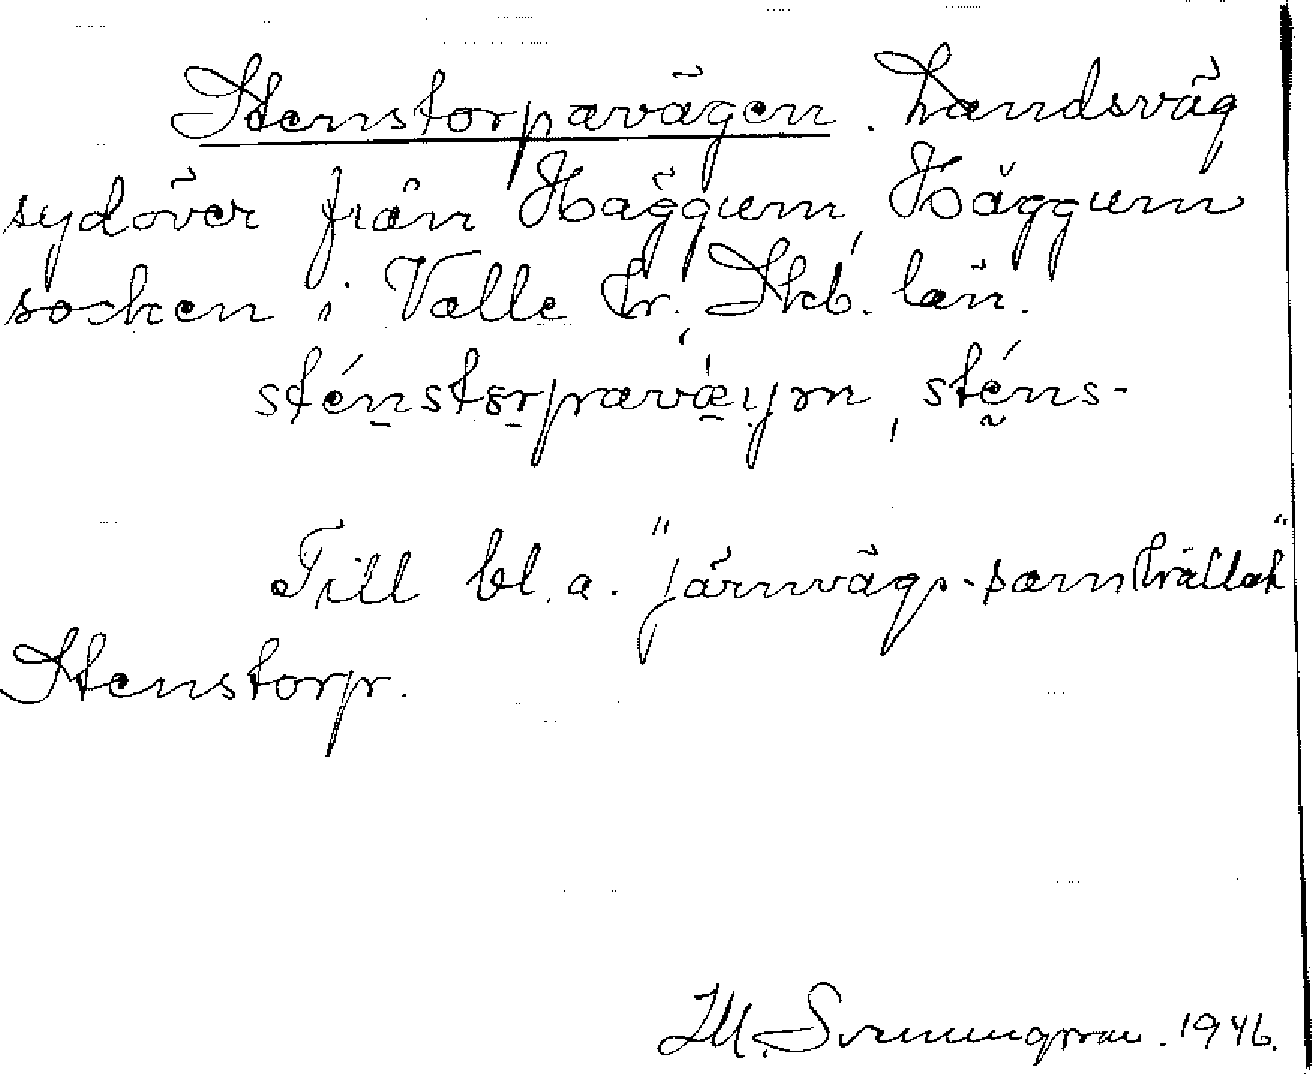 Stenstorpavägen. Landsväg
sydöver från Häggum, Häggum
socken i Valle hr., Skb. län.
sténstɷrpavǽɪɣɪn, sténs-
Till bl. a. "järnvägs-samhället"
Stenstorp.
M. Svenungsson. 1946.